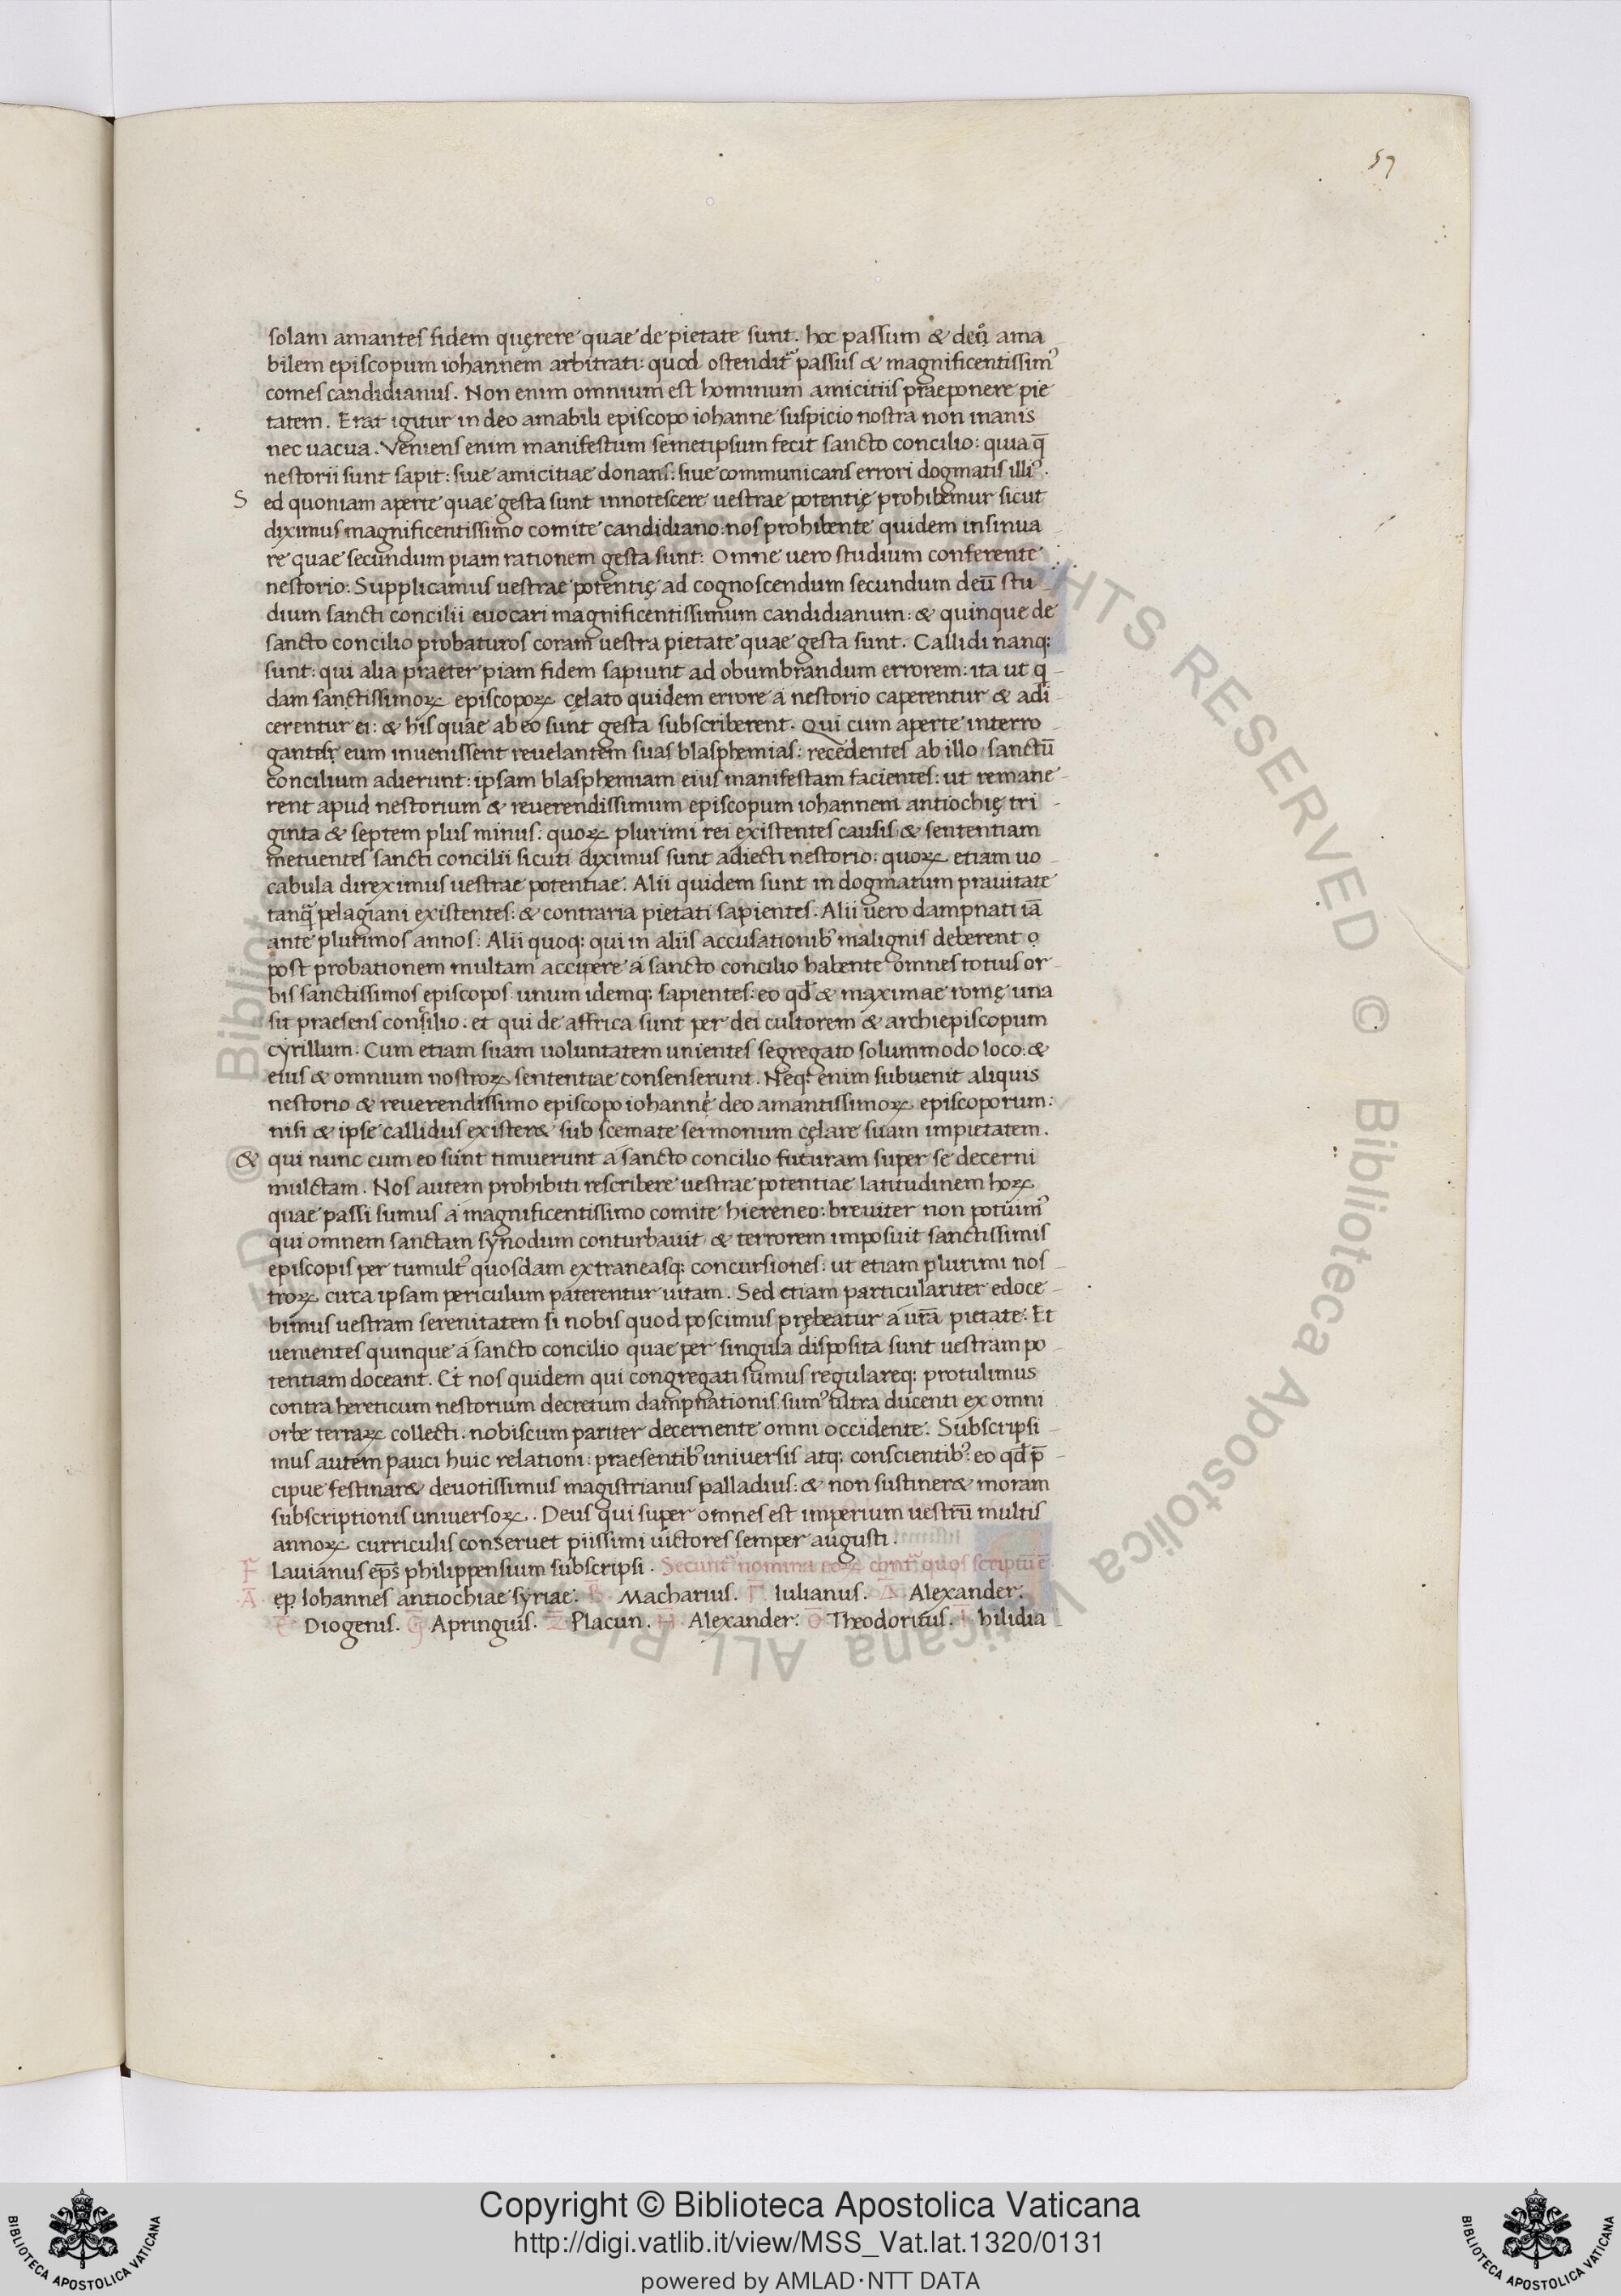 57
solam amantes fidem quęrere quae de pietate sunt. hoc passum & deū ama
bilem episcopum iohannem arbitrati: quod ostendit᷑ passus & magnificentissimꝰ
comes candidianus. Non enim omnium est hominum amicitiis praeponere pie
tatem. Erat igitur in deo amabili episcopo iohanne suspicio nostra non inanis
nec uacua. Veniens enim manifestum semetipsum fecit sancto concilio: quia q̄
nestorii sunt sapit: siue amicitiae donans: siue communicans errori dogmatis illiꝰ.
S ed quoniam aperte quae gesta sunt innotescere uestrae potentię prohibemur sicut
diximus magnificentissimo comite candidiano: nos prohibente quidem insinua
re quae secundum piam rationem gesta sunt: Omne uero studium conferente
nestorio: Supplicamus uestrae potentię ad cognoscendum secundum deū stu
dium sancti concilii euocari magnificentissimum candidianum: & quinque de
sancto concilio probaturos coram uestra pietate quae gesta sunt. Callidi nanq;
sunt: qui alia praeter piam fidem sapiunt ad obumbrandum errorem: ita ut q
dam sanctissimoꝝ episcopoꝝ cęlato quidem errore a nestorio caperentur & adi
cerentur ei: & his quae ab eo sunt gesta subscriberent. Qui cum aperte interro
gantes eum inuenissent reuelantem suas blasphemias: recedentes ab illo: sanctū
concilium adierunt: ipsam blasphemiam eius manifestam facientes: ut remane
rent apud nestorium & reuerendissimum episcopum iohannem antiochię tri
ginta & septem plus minus: quoꝝ plurimi rei existentes causis & sententiam
metuentes sancti concilii sicuti diximus sunt adiecti nestorio: quoꝝ etiam uo
cabula direximus uestrae potentiae. Alii quidem sunt in dogmatum prauitate
tanq̄ pelagiani existentes: & contraria pietati sapientes. Alii uero dampnati iā
ante plurimos annos. Alii quoq; qui in aliis accusationibꝰ malignis deberent
post probationem multam accipere a sancto concilio habente omnes totius or
bis sanctissimos episcopos unum idemq; sapientes: eo qđ & maximae romę una
sit praesens consilio: et qui de affrica sunt per dei cultorem & archiepiscopum
cyrillum. Cum etiam suam uoluntatem unientes segregato solummodo loco: &
eius & omnium nostroꝝ sententiae consenserunt. Neq; enim subuenit aliquis
nestorio & reuerendissimo episcopo iohanne deo amantissimoꝝ episcoporum:
nisi & ipse callidus exister& sub scemate sermonum cęlare suam impietatem.
& qui nunc cum eo sunt timuerunt a sancto concilio futuram super se decerni
mulctam. Nos autem prohibiti rescribere uestrae potentiae latitudinem hoꝝ
quae passi sumus a magnificentissimo comite hiereneo: breuiter non potuimꝰ
qui omnem sanctam synodum conturbauit & terrorem imposuit sanctissimis
episcopis per tumultꝰ quosdam extraneasq; concursiones: ut etiam plurimi nos
troꝝ circa ipsam periculum paterentur uitam. Sed etiam particulariter edoce
bimus uestram serenitatem si nobis quod poscimus prębeatur a ur̄a pietate: Et
uenientes quinque a sancto concilio quae per singula disposita sunt uestram po
tentiam doceant. Et nos quidem qui congregati sumus regulareq; protulimus
contra hereticum nestorium decretum dampnationis: sumꝰ ultra ducenti ex omni
orbe terraꝝ collecti: nobiscum pariter decernente omni occidente. Subscripsi
mus autem pauci huic relationi: praesentibꝰ uniuersis atq; conscientibꝰ: eo qđ p̄
cipue festinar& deuotissimus magistrianus palladius: & non sustiner& moram
subscriptionis uniuersoꝝ. Deus qui super omnes est imperium uestrū multis
annoꝝ curriculis conseruet piissimi uictores semper augusti.
F lauianus ep̄s philippensium subscripsi. Secunt᷑ nomina eoꝝ contra quos scriptū ē
Ā ep Iohannes antiochiae syriae. B̄ Macharius. Γ̄ Iulianus. Δ̄ Alexander.
Ē Diogenis. Ḡ Apringuis. Z̄ Placun. H̄ Alexander. Ō Theodoritus. Ī hilidia
© Biblioteca Apostolica Vaticana ALL RIGHTS RESERVED
Copyright © Biblioteca Apostolica Vaticana
http://digi.vatlib.it/view/MSS_Vat.lat.1320/0131
powered by AMLAD·NTT DATA
BIBLIOTECA APOSTOLICA VATICANA
BIBLIOTECA APOSTOLICA VATICANA